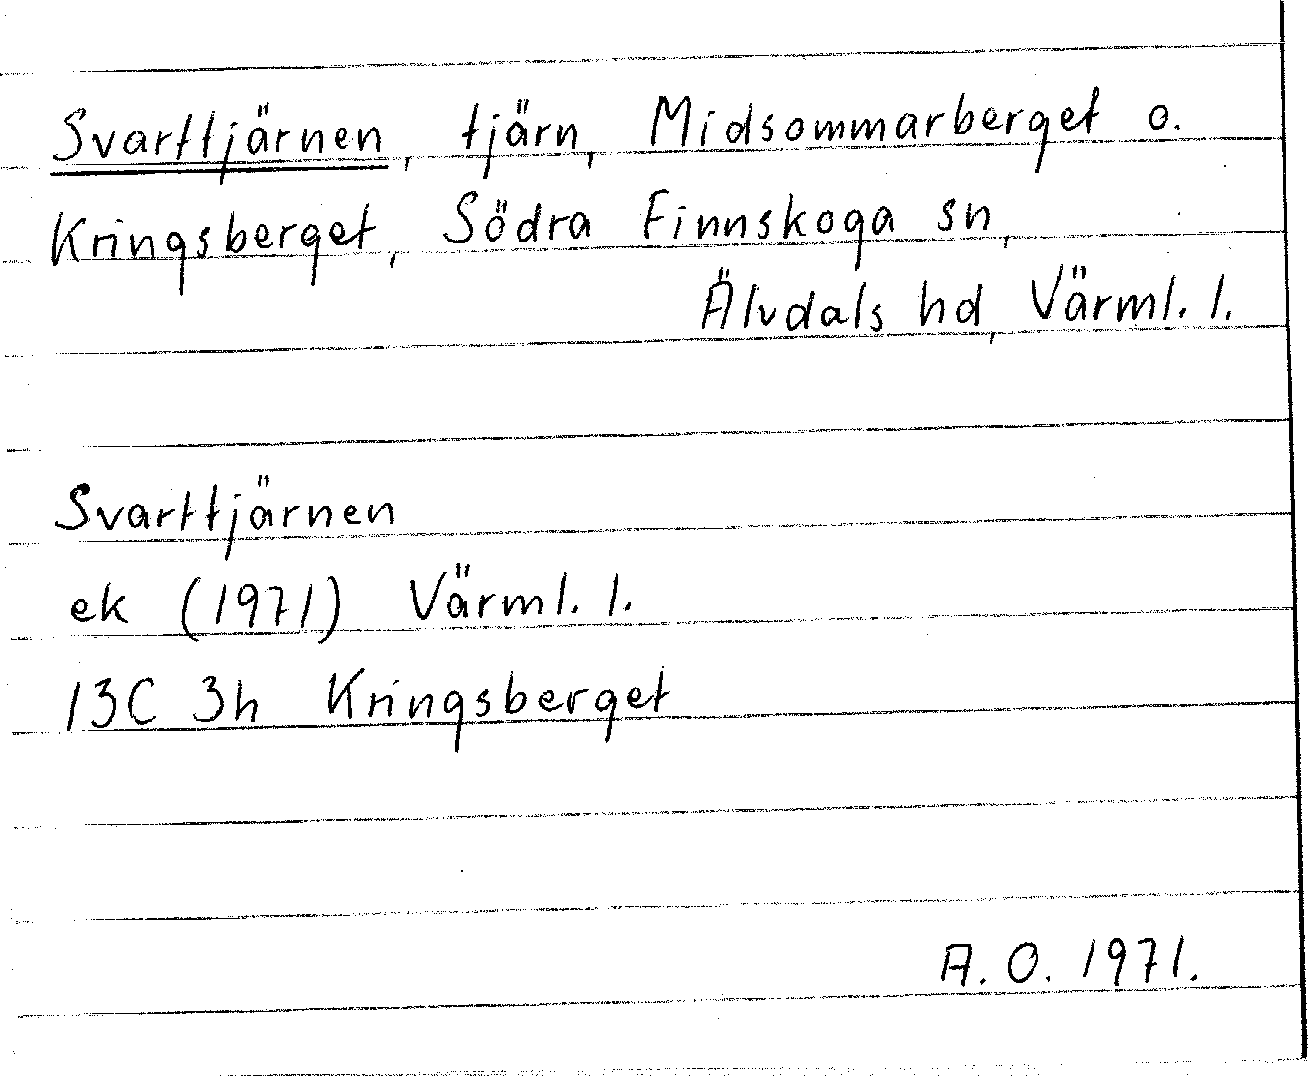 Svarttjärnen, tjärn, Midsommarberget o.
Kringsberget, Södra Finnskoga sn,
Älvdals hd, Värml. l.
Svarttjärnen
ek (1971) Värml. l.
13C 3h Kringsberget
A. O. 1971.